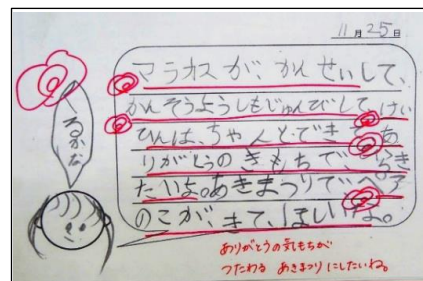 11月25日
くるかな
マラカスが、かんせいして、
かんそうようしもじゅんびして、けい
ひんは、ちゃんとできて、あ
りがとうのきもちで、
たいよ。あきまつりで、ペア
のこが、きて、ほしいな。
ありがとうの気もちが
つたわる あきまつりにしたいね。